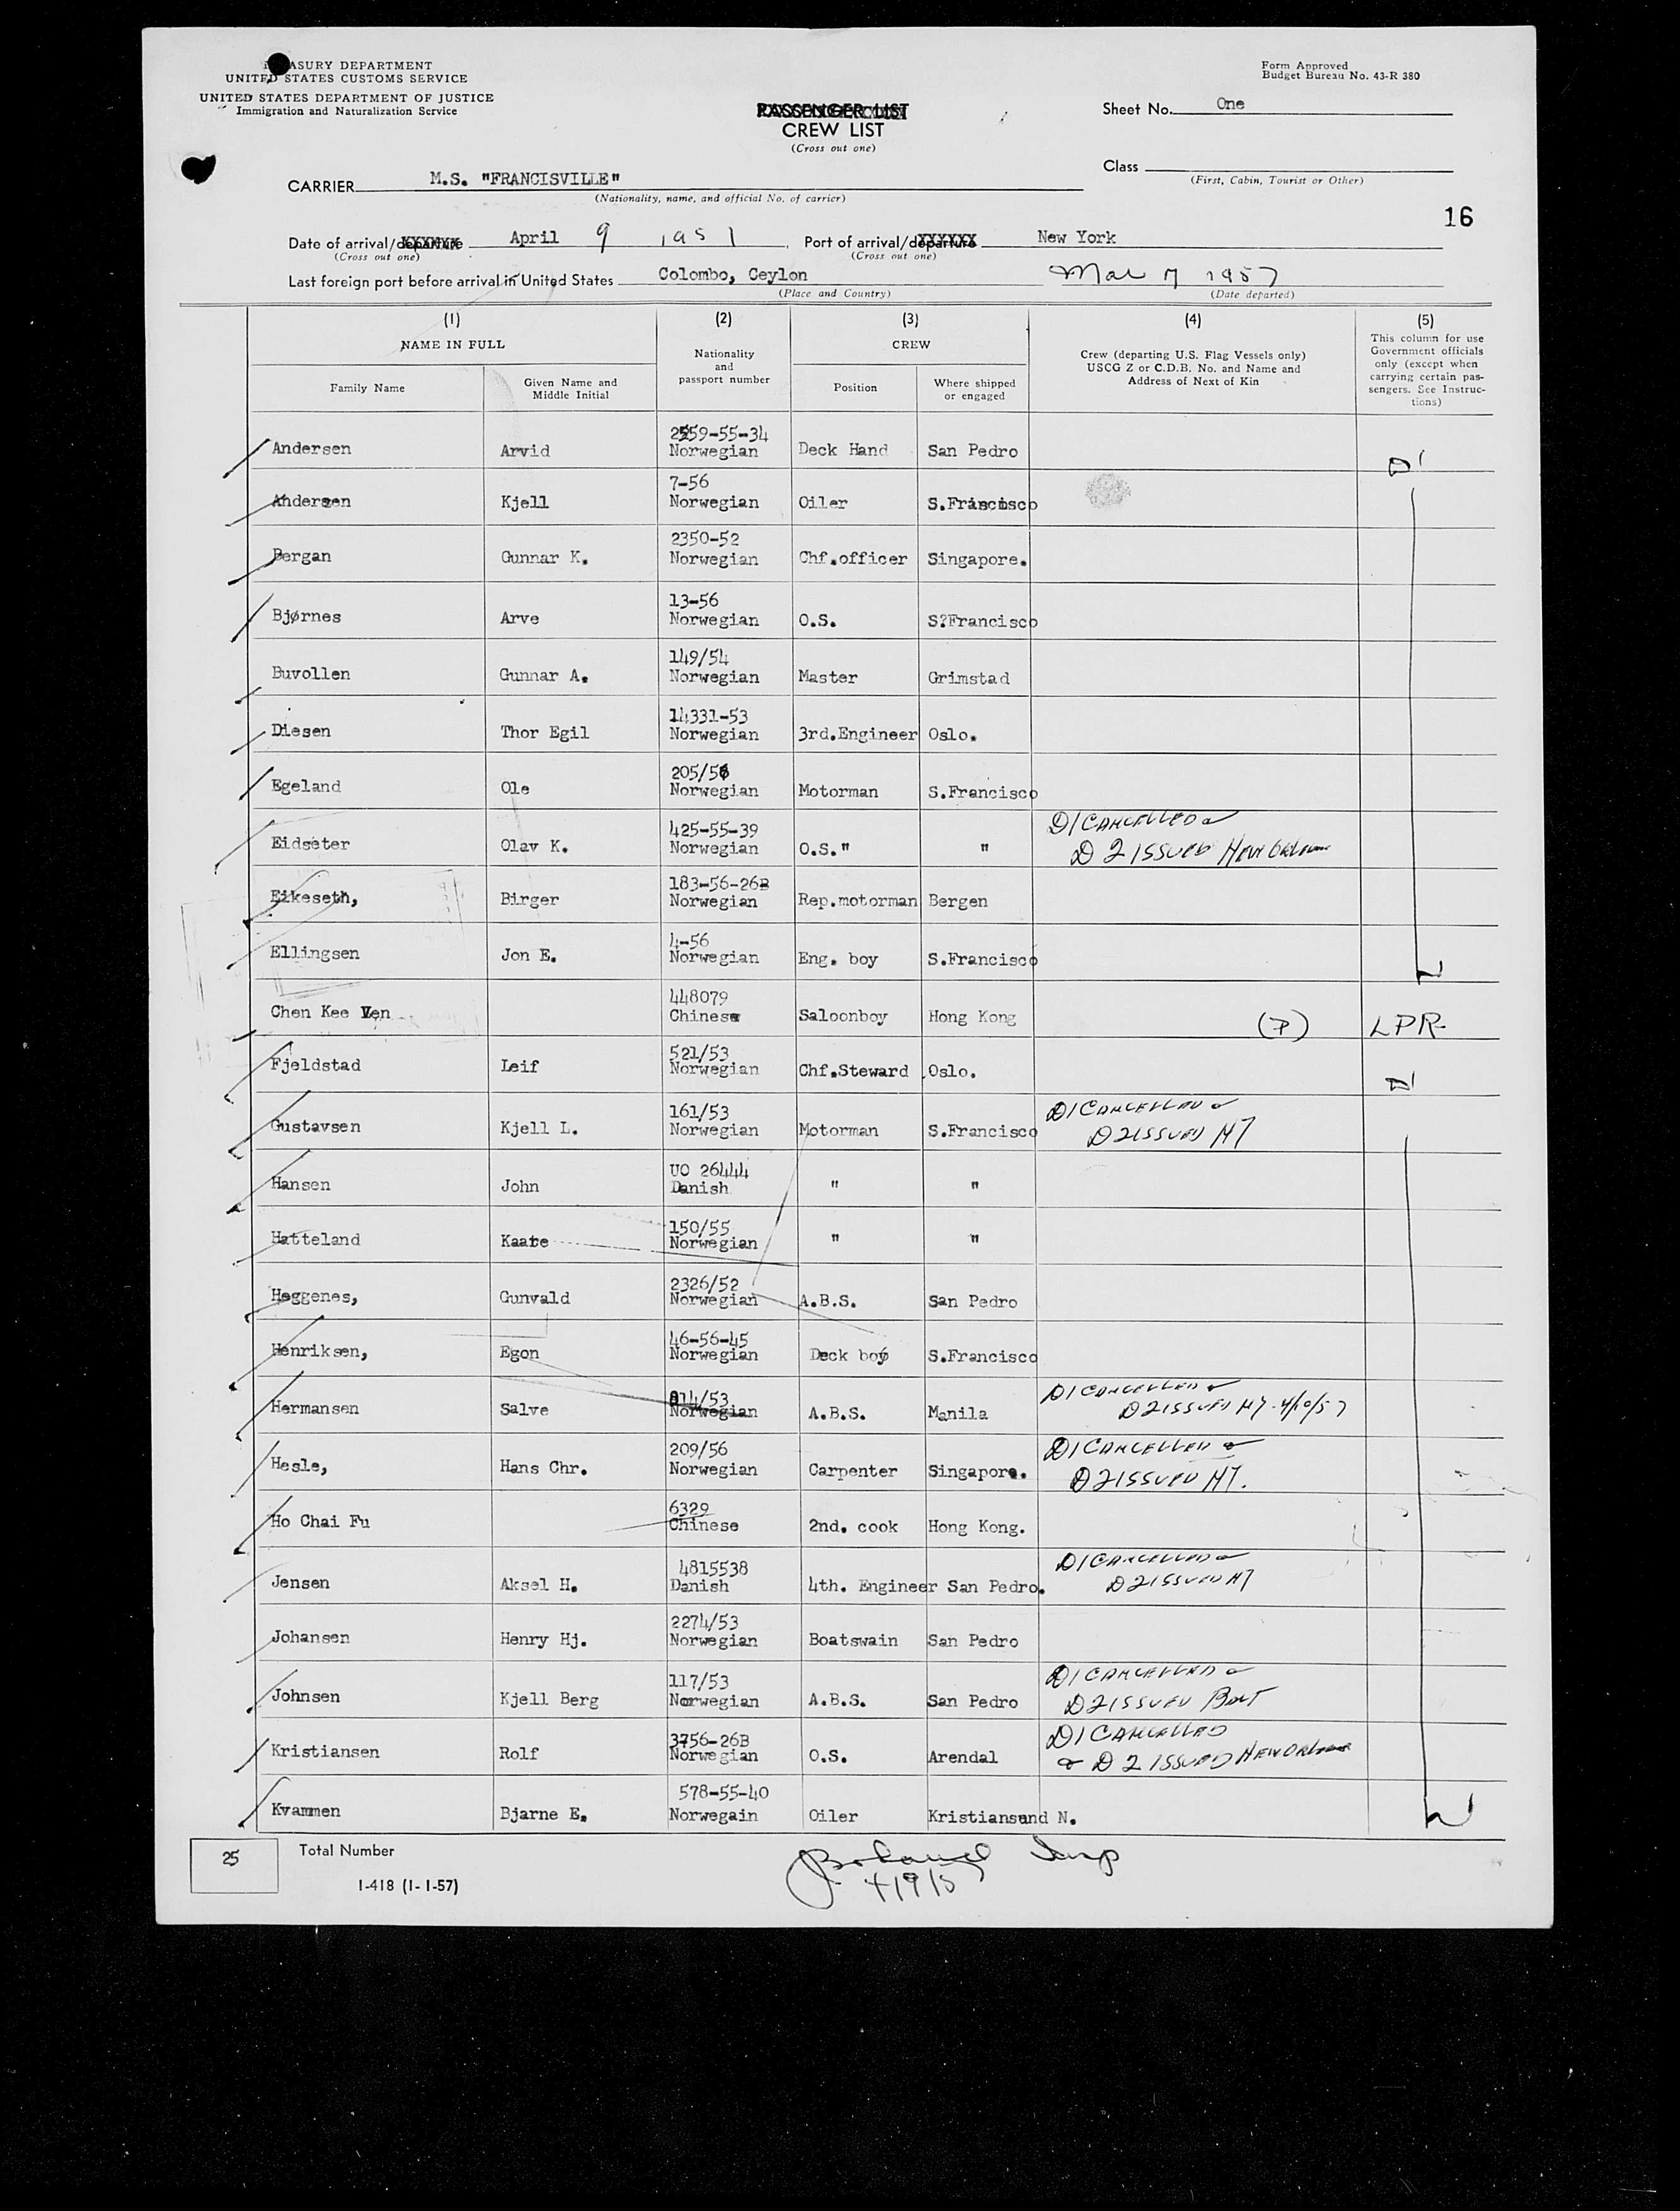 TREASURY DEPARTMENT
UNITED STATES CUSTOMS SERVICE
UNITED STATES DEPARTMENT OF JUSTICE
Immigration and Naturalization Service
Form Approved
Budget Bureau No. 43-R 380
PASSENGER LIST
CREW LIST
(Cross out one)
Sheet No. One
Class
(First, Cabin, Tourist or Other)
CARRIER M.S. "FRANCISVILLE"
(Nationality, name, and official No. of carrier)
16
Date of arrival/departure April 9 1957 Port of arrival/departure New York
(Cross out one) (Cross out one)
Last foreign port before arrival in United States Colombo, Ceylon Mar 7 1957
(Place and Country) (Date departed)
(1) (2) (3) (4) (5)
NAME IN FULL
Family Name
Given Name and
Middle Initial
Nationality
and
passport number
CREW
Position
Where shipped
or engaged
Crew (departing U.S. Flag Vessels only)
USCG Z or C.D.B. No. and Name and
Address of Next of Kin
This column for use
Government officials
only (except when
carrying certain pas-
sengers. See Instruc-
tions)
2559-55-34
Andersen Arvid Norwegian Deck Hand San Pedro D1
7-56
Andersen Kjell Norwegian Oiler S.Francisco
2350-52
Bergan Gunnar K. Norwegian Chf.officer Singapore.
13-56
Bjørnes Arve Norwegian O.S. S?Francisco
149/54
Buvollen Gunnar A. Norwegian Master Grimstad
14331-53
Diesen Thor Egil Norwegian 3rd.Engineer Oslo.
205/56
Egeland Ole Norwegian Motorman S.Francisco
425-55-39 D1 CANCELLED &
Eidseter Olav K. Norwegian O.S." " D2 ISSUED NEW ORLEANS
183-56-26B
Eikeseth, Birger Norwegian Rep.motorman Bergen
4-56
Ellingsen Jon E. Norwegian Eng. boy S.Francisco
448079
Chen Kee Ven Chinese Saloonboy Hong Kong (P) LPR
521/53
Fjeldstad Leif Norwegian Chf.Steward Oslo. D1
161/53 D1 CANCELLED &
Gustavsen Kjell L. Norwegian Motorman S.Francisco D2 ISSUED NY
UO 26444
Hansen John Danish " "
150/55
Hatteland Kaare Norwegian " "
2326/52
Heggenes, Gunvald Norwegian A.B.S. San Pedro
46-56-45
Henriksen, Egon Norwegian Deck boy S.Francisco
814/53 D1 CANCELLED &
Hermansen Salve Norwegian A.B.S. Manila D2 ISSUED NY. 4/10/57
209/56 D1 CANCELLED &
Hesle, Hans Chr. Norwegian Carpenter Singapore. D2 ISSUED NY.
6329
Ho Chai Fu Chinese 2nd. cook Hong Kong.
4815538 D1 CANCELLED &
Jensen Aksel H. Danish 4th. Engineer San Pedro. D2 ISSUED NY
2274/53
Johansen Henry Hj. Norwegian Boatswain San Pedro
117/53 D1 CANCELLED &
Johnsen Kjell Berg Norwegian A.B.S. San Pedro D2 ISSUED BALT
3756-26B D1 CANCELLED
Kristiansen Rolf Norwegian O.S. Arendal & D2 ISSUED NEW ORLEANS
578-55-40
Kvammen Bjarne E. Norwegain Oiler Kristiansund N.
25 Total Number
I-418 (1-1-57)
Insp
4/9/5